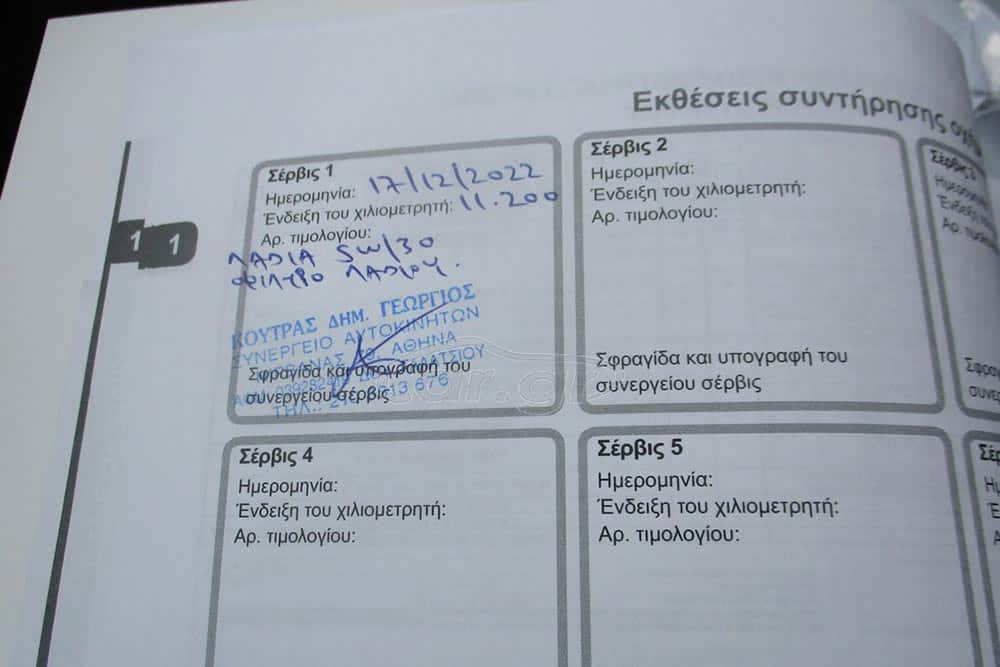 Εκθέσεις συντήρησης
1 1
Σέρβις 1
Ημερομηνία: 17/12/2022
Ένδειξη του χιλιομετρητή: 11.200
Αρ. τιμολογίου:
ΛΑΔΙΑ 5W/30
ΦΙΛΤΡΟ ΛΑΔΙΟΥ.
ΚΟΥΤΡΑΣ ΔΗΜ. ΓΕΩΡΓΙΟΣ
ΣΥΝΕΡΓΕΙΟ ΑΥΤΟΚΙΝΗΤΩΝ
ΑΘΗΝΑ
Σφραγίδα και υπογραφή του
συνεργείου σέρβις
ΤΗΛ.: 613 676
Σέρβις 2
Ημερομηνία:
Ένδειξη του χιλιομετρητή:
Αρ. τιμολογίου:
Σφραγίδα και υπογραφή του
συνεργείου σέρβις
Σέρβις 4
Ημερομηνία:
Ένδειξη του χιλιομετρητή:
Αρ. τιμολογίου:
Σέρβις 5
Ημερομηνία:
Ένδειξη του χιλιομετρητή:
Αρ. τιμολογίου: